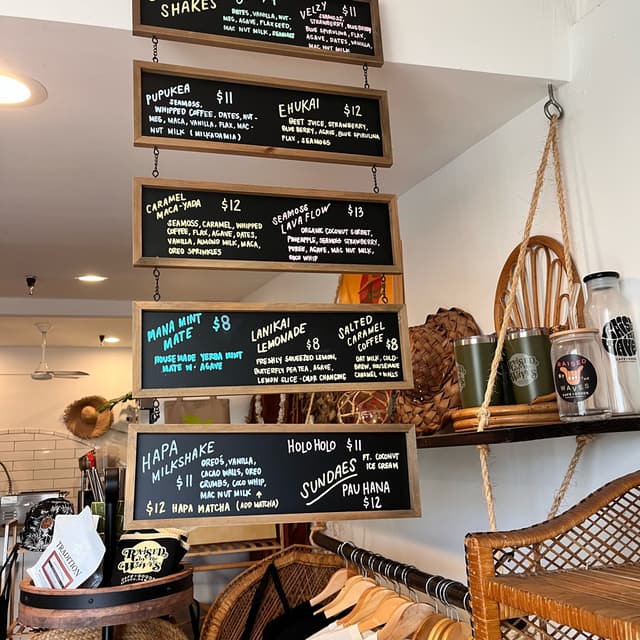 SHAKES
DATES, VANILLA, NUT-
MEG, AGAVE, FLAX SEED,
MAC NUT MILK, SEAMOSS
VELZY $11
SEAMOSS,
STRAWBERRY, BLUEBERRY
BLUE SPIRULINA, FLAX,
AGAVE, DATES, VANILLA,
MAC NUT MILK
PUPUKEA $11
SEAMOSS,
WHIPPED COFFEE, DATES, NUT-
MEG, MACA, VANILLA, FLAX, MAC-
NUT MILK (MILKADAMIA)
EHUKAI $12
BEET JUICE, STRAWBERRY,
BLUEBERRY, AGAVE, BLUE SPIRULINA
FLAX, SEAMOSS
CARAMEL
MACA-YADA $12
SEAMOSS, CARAMEL, WHIPPED
COFFEE, FLAX, AGAVE, DATES,
VANILLA, ALMOND MILK, MACA,
OREO SPRINKLES
SEAMOSS
LAVA FLOW $13
ORGANIC COCONUT SORBET,
PINEAPPLE, SEAMOSS STRAWBERRY,
PUREE, AGAVE, MAC NUT MILK,
COCO WHIP
MANA MINT
MATE $8
HOUSE MADE YERBA MINT
MATE W. AGAVE
LANIKAI
LEMONADE
$8
FRESHLY SQUEEZED LEMON,
BUTTERFLY PEA TEA, AGAVE,
LEMON SLICE - COLOR CHANGING
SALTED
CARAMEL
COFFEE $8
OAT MILK, COLD-
BREW, HOUSEMADE
CARAMEL
HAPA
MILKSHAKE
$11
OREOS, VANILLA,
CACAO NIBS, OREO
CRUMBS, COCO WHIP,
MAC NUT MILK
$12 HAPA MATCHA (ADD MATCHA)
HOLO HOLO $11
SUNDAES
FT. COCONUT
ICE CREAM
PAU HANA
$12
TRADITION
RAISED
BY THE
WAVES
RAISED
WAVES